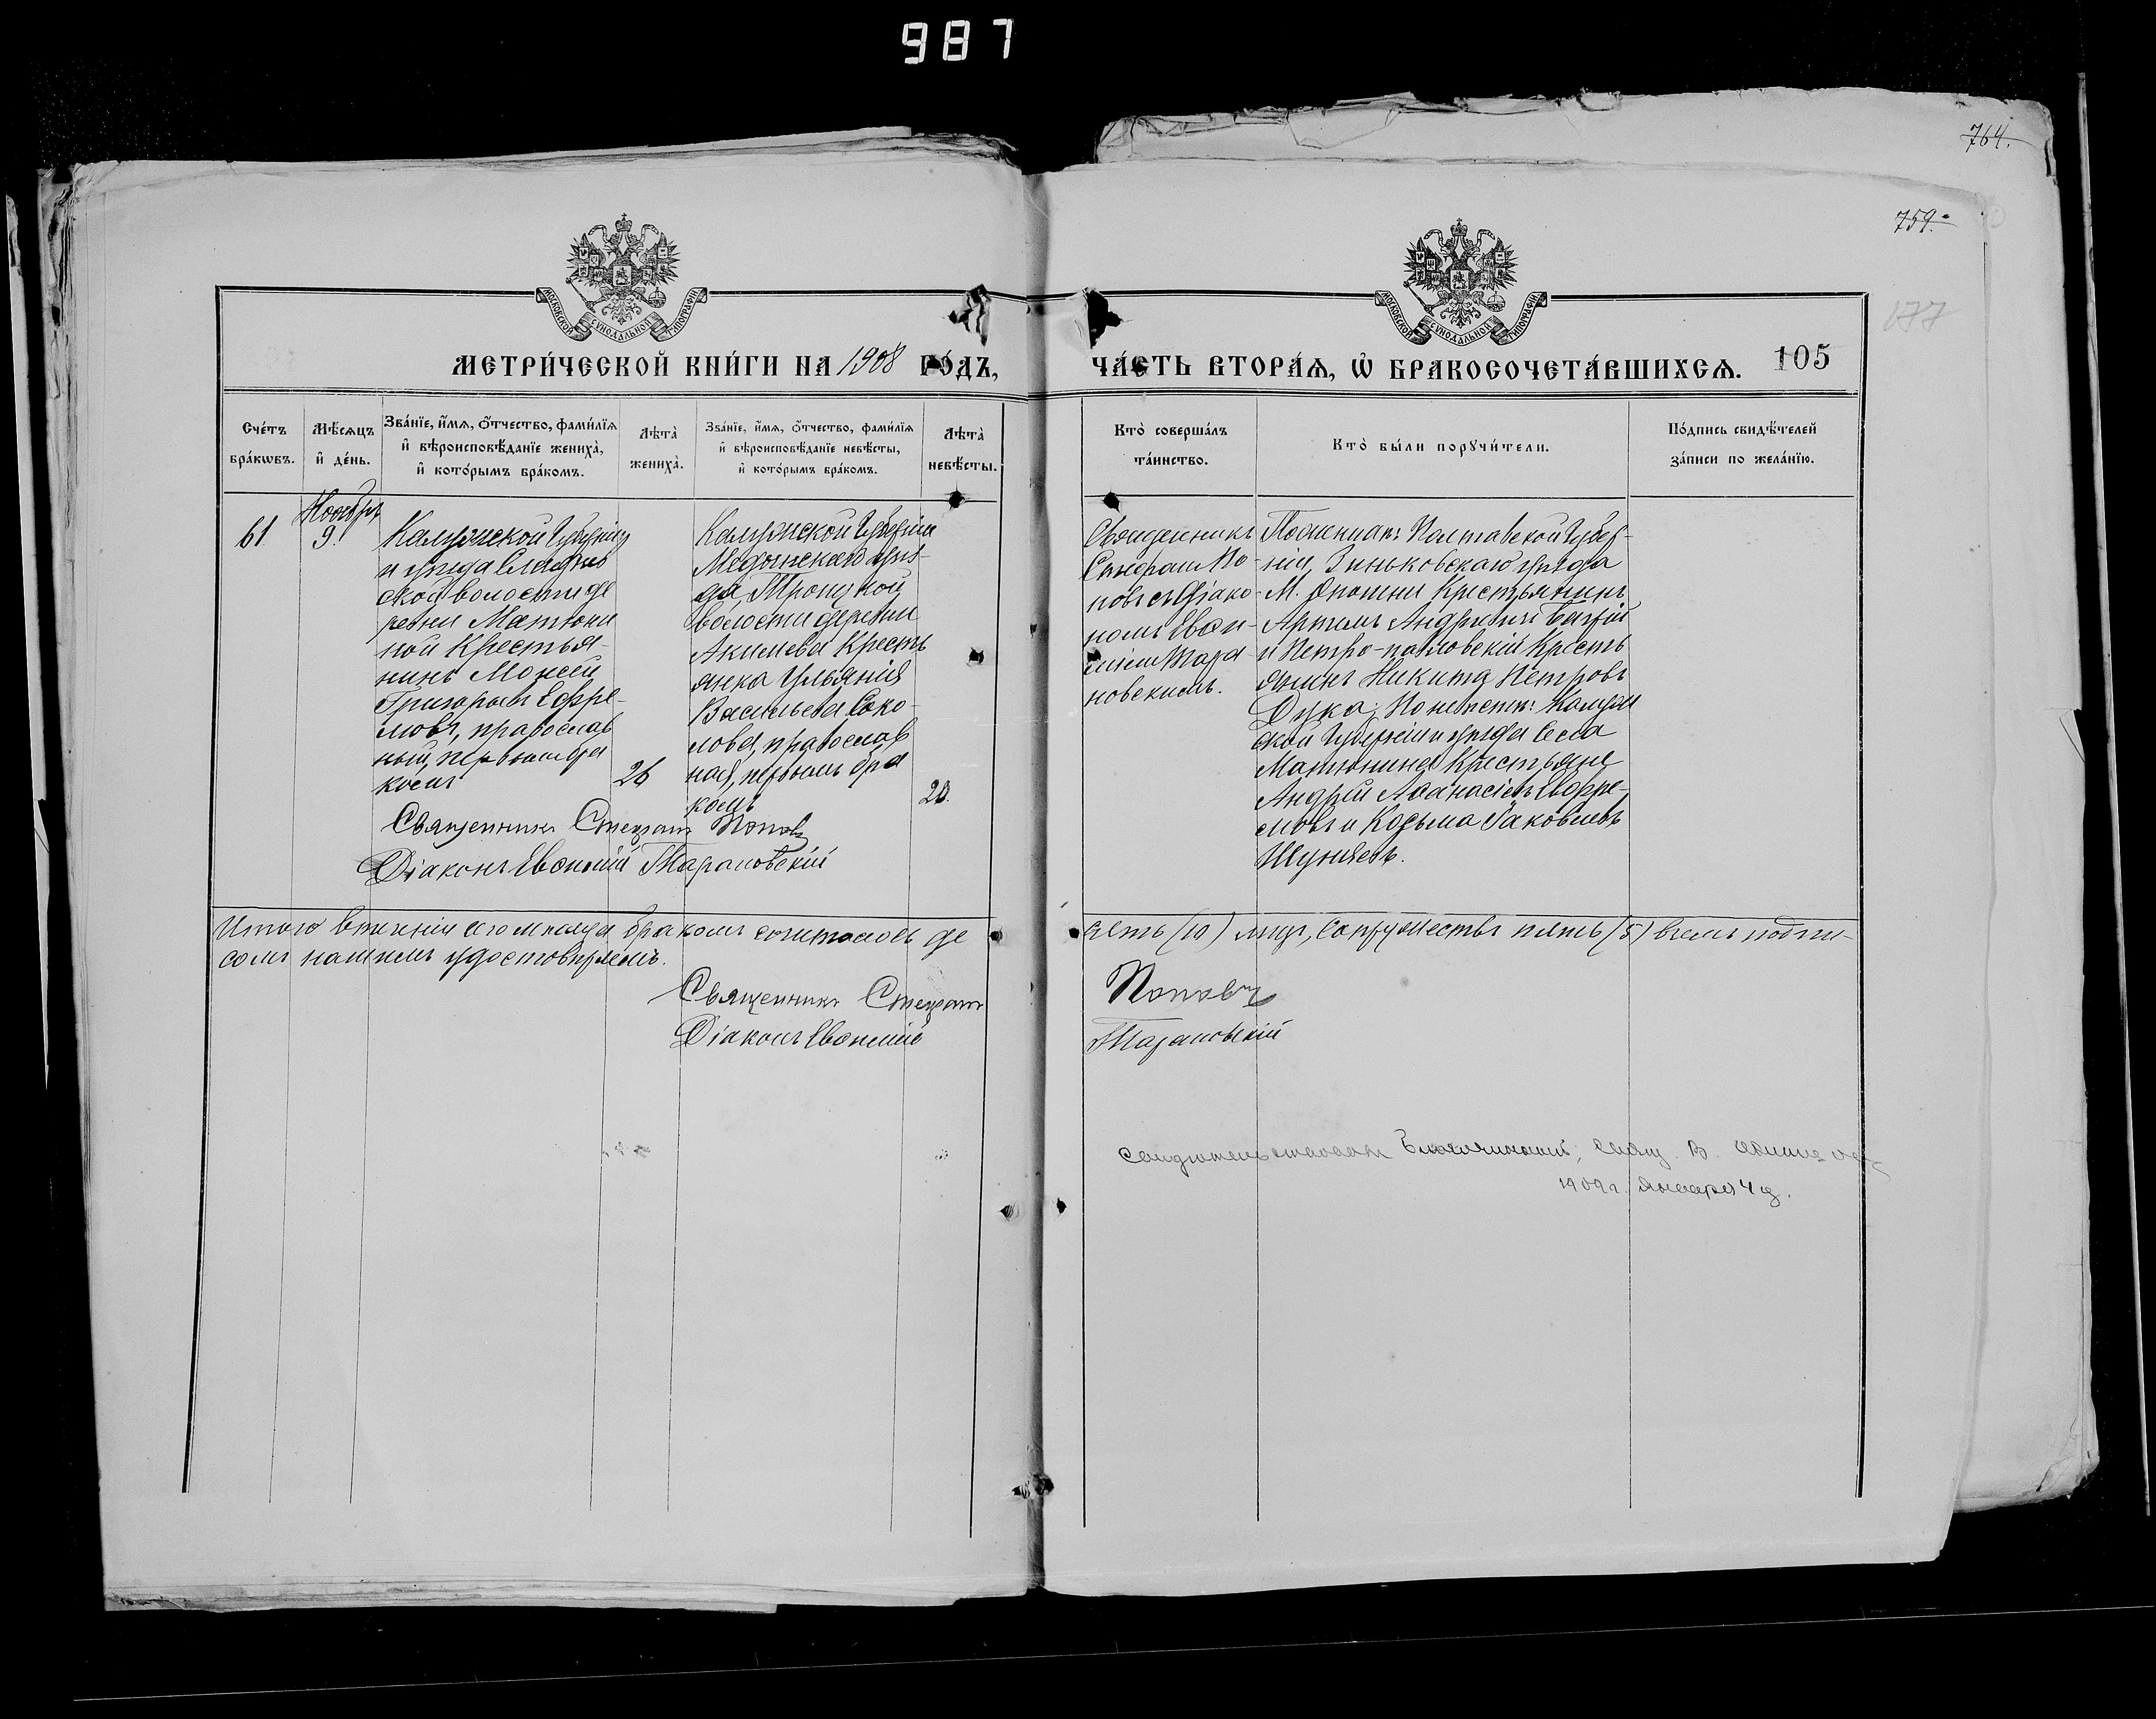 987
764.
759.
177
МОСКОВСКОЙ СУНОДАЛЬНОЙ ТИПОГРАФІИ
МОСКОВСКОЙ СУНОДАЛЬНОЙ ТИПОГРАФІИ
МЕТРИ́ЧЕСКОЙ КНИ́ГИ НА 1908 ГО́ДЪ,
ЧА́СТЬ ВТОРА́Ѧ, Ѡ҆ БРАКОСОЧЕТА́ВШИХСѦ. 105
Сче́тъ
бра́кѡвъ.
Мѣ́сѧцъ
и҆ де́нь.
Зва́нїе, и҆́мѧ, ѻ҆́тчество, фами́лїѧ
и҆ вѣроисповѣ́данїе жениха̀,
и҆ кото́рымъ бра́комъ.
Лѣта̀
жениха̀.
Зва́нїе, и҆́мѧ, ѻ҆́тчество, фами́лїѧ
и҆ вѣроисповѣ́данїе невѣ́сты,
и҆ кото́рымъ бра́комъ.
Лѣта̀
невѣ́сты.
Кто̀ соверша́лъ
та́инство.
Кто̀ бы́ли порꙋчи́тели.
По́дпись свидѣ́телей
за́писи по жела́нїю.
61
Ноябрь
9.
Калужской Губерніи
и уѣзда
ской волости де
ревни Матюни
ной Крестья-
нинъ Моисей
Григорьевъ Ефре-
мовъ, православ
ный, первымъ бра
комъ
26
Калужской Губерніи
Медынскаго уѣз-
да Троицкой
волости деревни
Акимова Кресть
янка Ульянія
Васильева Соко-
лова, православ
ная, первымъ бра
комъ
20.
Священникъ
Стефанъ По-
повъ съ Діако-
номъ Евѳи-
міемъ Тара-
новскимъ.
По женихѣ: Полтавской Губер-
ніи, Зиньковскаго уѣзда
М. Опошни Крестьянинъ
Артемъ Андреевъ
и Петро-павловскій Кресть
янинъ Никита Петровъ
Дука; По невѣстѣ: Калуж
ской Губерніи и уѣзда Села
Матюнина Крестьяне
Андрей Аѳанасіевъ Ефре-
мовъ и Козьма Іаковлевъ
Шуняевъ.
Священникъ Стефанъ Поповъ
Діаконъ Евѳимій Тарановскій
Итого въ теченіи сего мѣсяца бракомъ сочеталось де
сять (10) лицъ, супружествъ пять (5) въ чемъ подпи-
сомъ нашимъ удостовѣряемъ.
Священникъ Стефанъ Поповъ
Діаконъ Евѳимій Тарановскій
Свидѣтельствовалъ Благочинный, Свящ. В.
1909 г. Января 4 д.